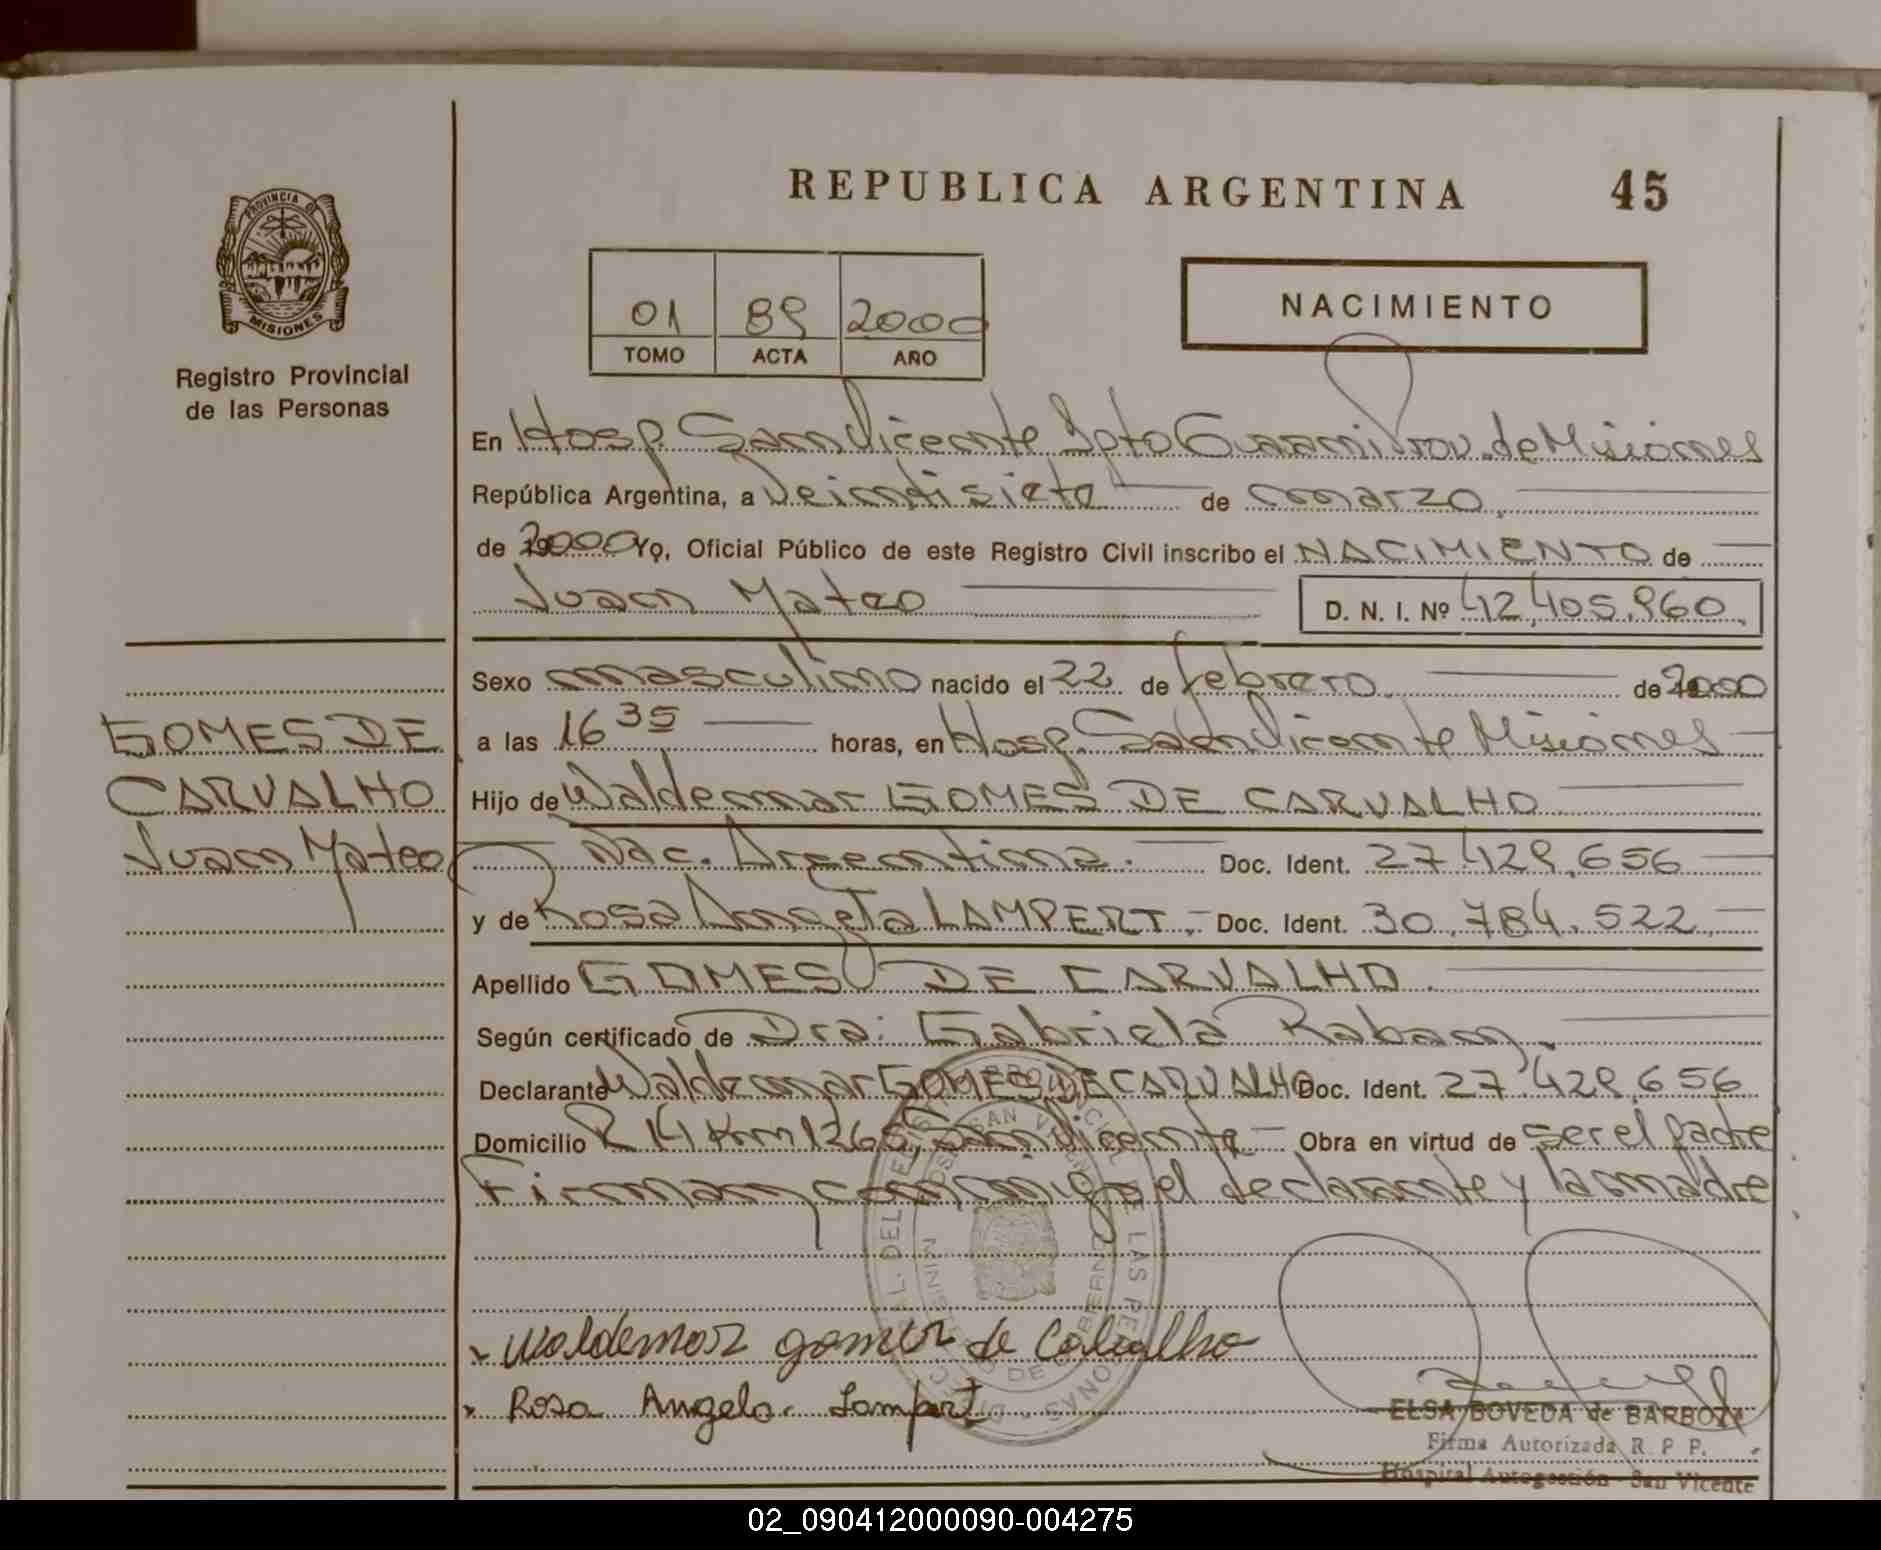 REPUBLICA ARGENTINA 45
PROVINCIA DE
MISIONES
Registro Provincial
de las Personas
01 89 2000
TOMO ACTA AÑO
NACIMIENTO
En Hosp. San Vicente Dpto Guaraní Prov. de Misiones
República Argentina, a Veintisiete de marzo.
de 2000 Yo, Oficial Público de este Registro Civil inscribo el NACIMIENTO de
Juan Mateo D. N. I. Nº 42,405.960.
Sexo masculino nacido el 22 de febrero de 2000
a las 16 35 horas, en Hosp. San Vicente Misiones
Hijo de Waldemar GOMES DE CARVALHO
Nac. Argentina. Doc. Ident. 27.429.656
y de Rosa Angela LAMPERT. Doc. Ident. 30.784.522
Apellido GOMES DE CARVALHO.
Según certificado de Dra: Gabriela Raban.
Declarante Waldemar GOMES DE CARVALHO Doc. Ident. 27.429.656
Domicilio R 14 Km 1266 San Vicente Obra en virtud de ser el padre
Firman conmigo el declarante y la madre
GOMES DE
CARVALHO
Juan Mateo
Waldemar gomes de Carvalho
Rosa Angela Lampert
ELSA BOVEDA de BARBOZA
Firma Autorizada R. P. P.
Hospital Autogestión San Vicente
02_090412000090-004275